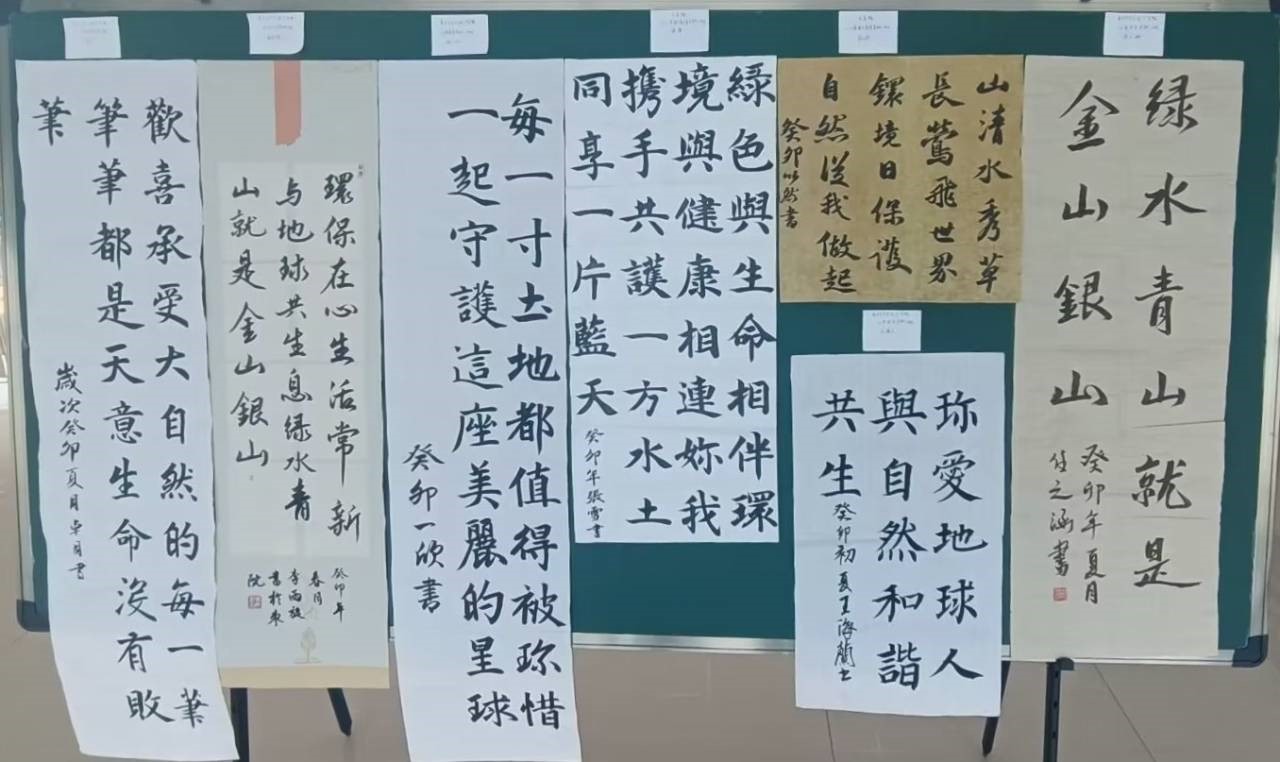 绿水青山就是
金山銀山
癸卯年夏月
之涵書
山清水秀草
長鶯飛世界
鐶境日保護
自然從我做起
癸卯以然書
珎愛地球人
與自然和諧
共生
癸卯初夏王海蘭書
緑色與生命相伴環
境與健康相連妳我
携手共護一方水土
同享一片藍天
癸卯年張雪書
每一寸土地都值得被珎惜
一起守護這座美麗的星球
癸卯一欣書
環保在心生活常新
与地球共生息绿水青
山就是金山銀山
癸卯年
春月
李雨旋
書於東
院
歡喜承受大自然的每一筆
筆筆都是天意生命沒有敗
筆
歲次癸卯夏月卓月書